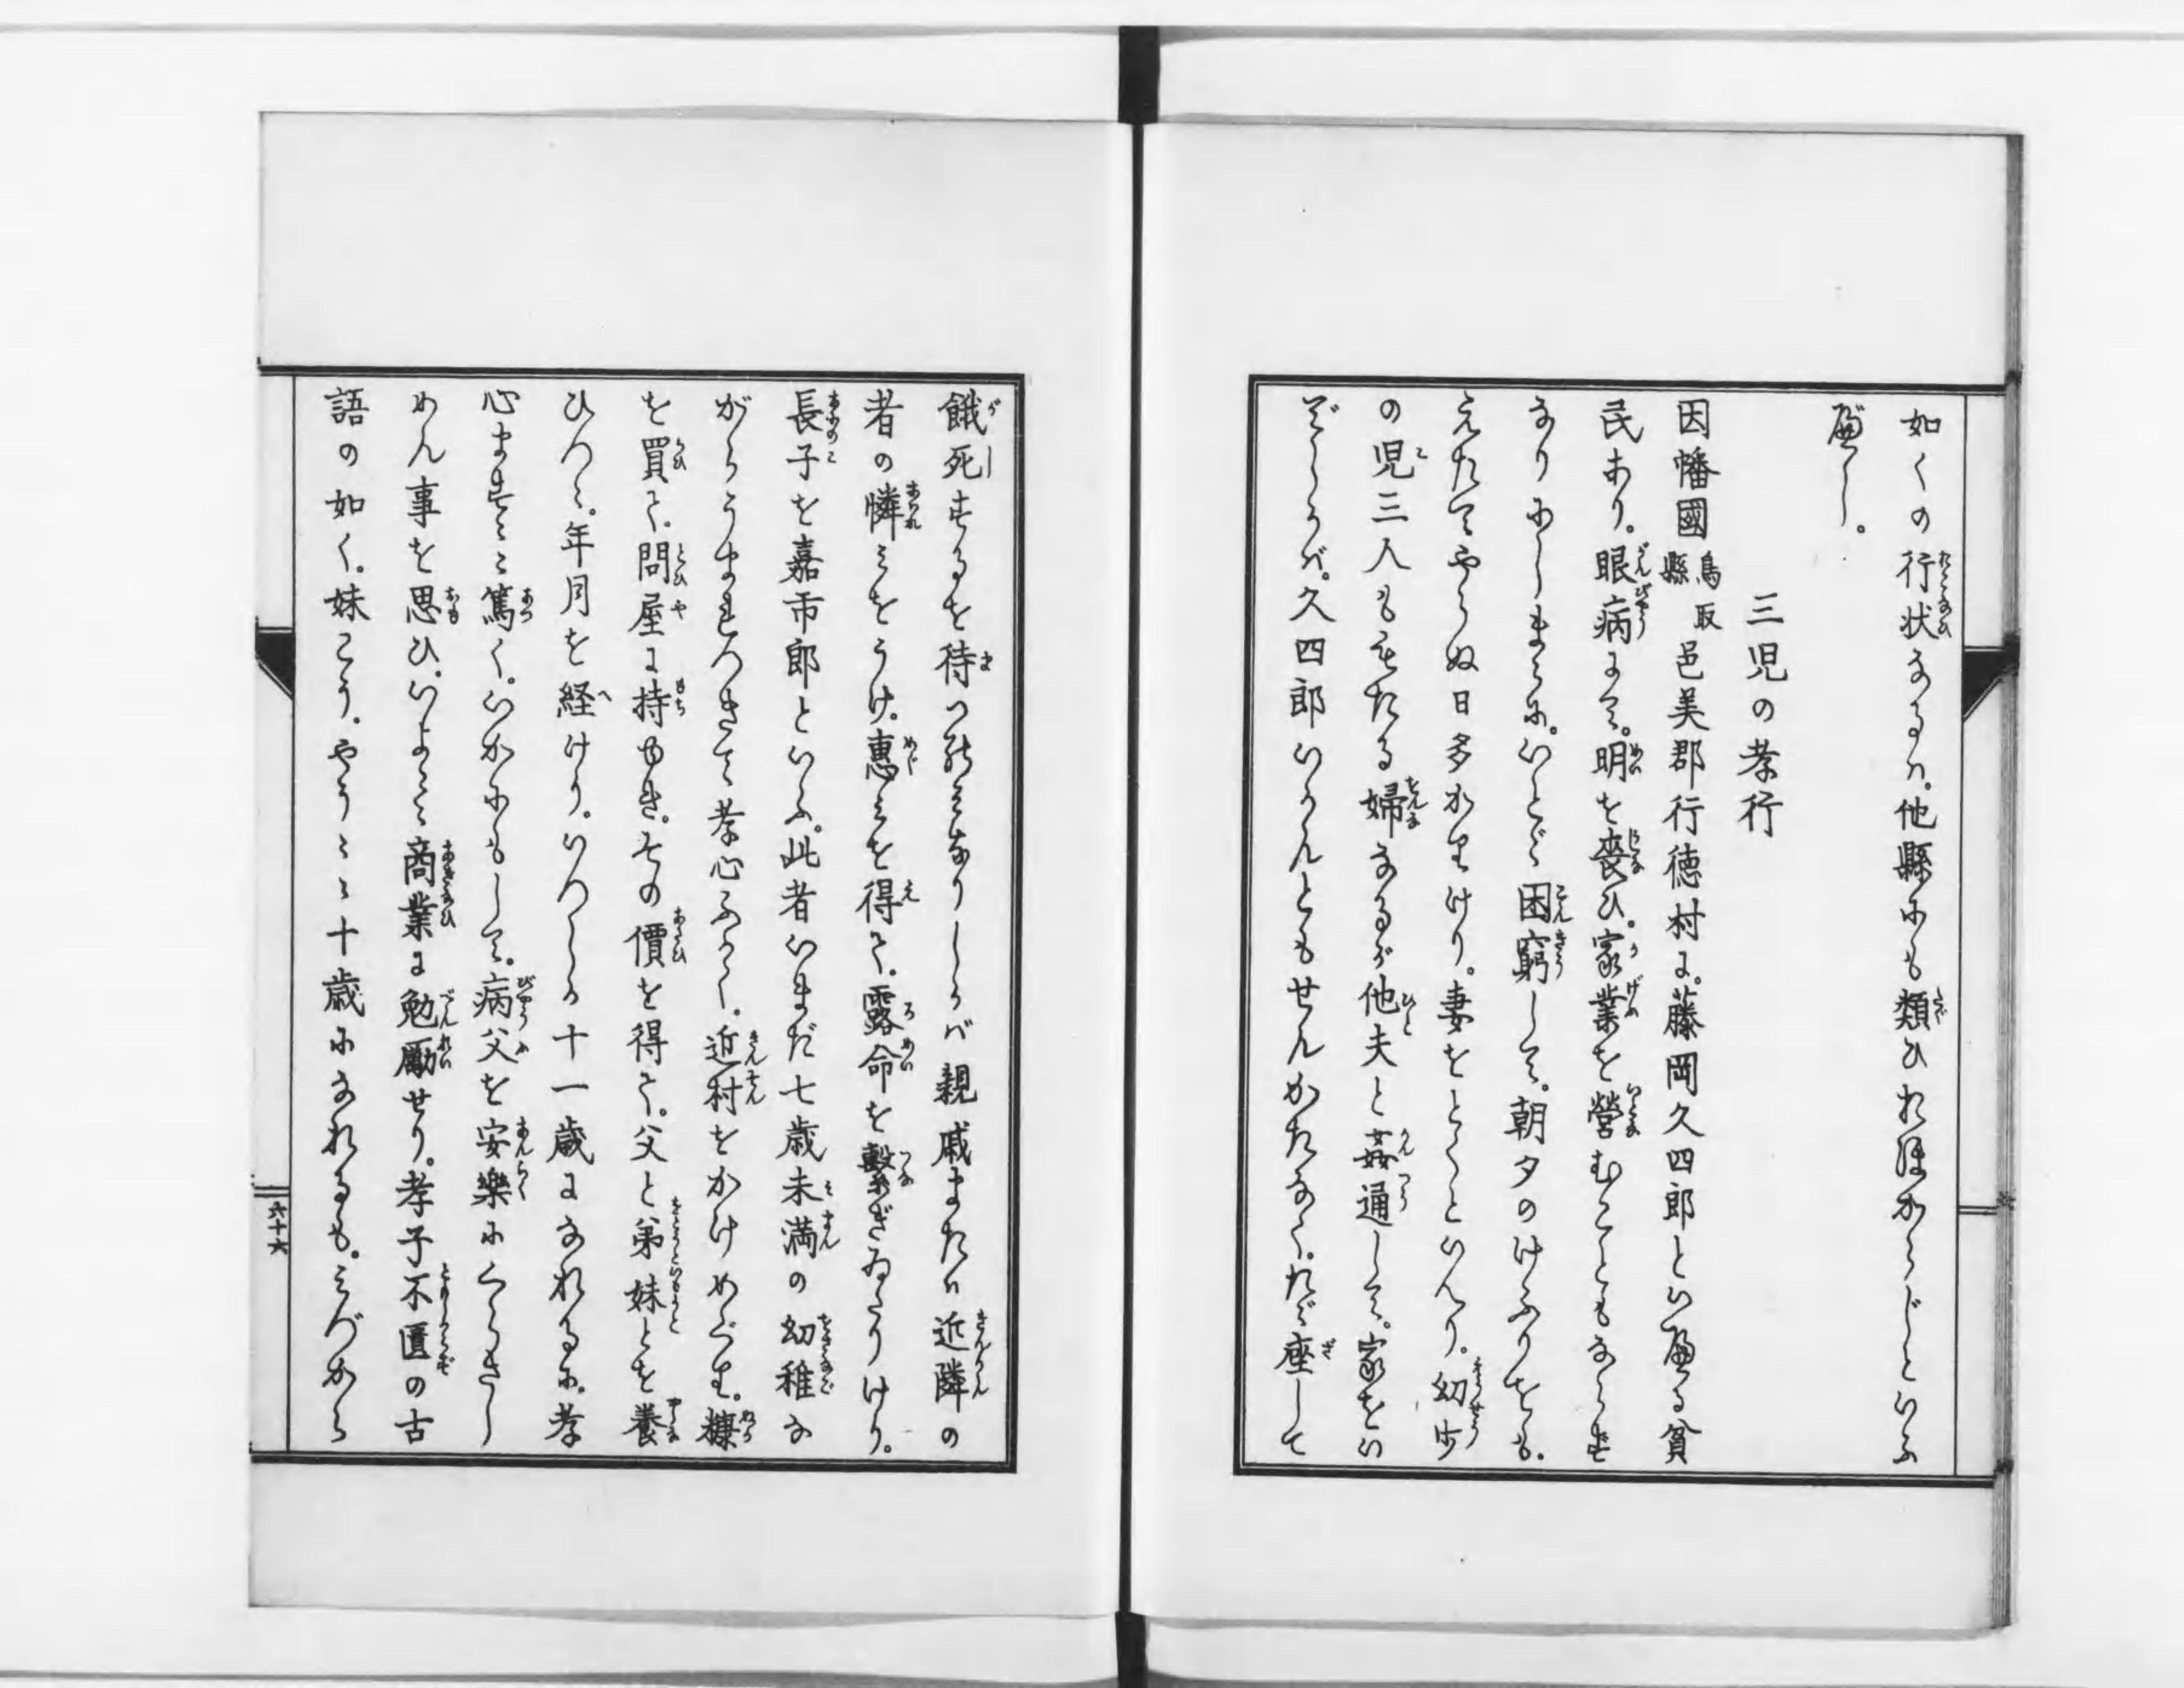 如くの行状なるハ。他縣にも類ひれ程からじといふ
べし。
三児の孝行
因幡國鳥取縣邑美郡行徳村に。藤岡久四郎といへる貧
民あり。眼病にて。明を喪ひ。家業を營むこともならず
なりにしまゝに。いとゞ困窮して。朝夕のけふりをも。
えたてやらぬ日多かりけり。妻をとくといへり。幼少
の児三人もをたる婦なるが他夫と姦通して。家をい
でしかバ。久四郎いかんともせんかたなく。たゞ座して
餓死するを待つのミなりしかバ親戚または近隣の
者の憐ミをうけ。惠ミを得て。露命を繫ぎゐたりけり。
長子を嘉市郎といふ。此者いまだ七歳未満の幼稚な
がらうまれつきて孝心ふかく。近村をかけめぐり。糠
を買て。問屋に持ゆき。その價を得て。父と弟妹とを養
ひつゝ。年月を経けり。いつしか十一歳になれるに。孝
心ますゝゝ篤く。いかにもして。病父を安樂にくらさし
めん事を思ひ。いよよゝ商業に勉勵せり。孝子不匱の古
語の如く。妹こう。やうゝゝ十歳になれるも。ミづから
六十六